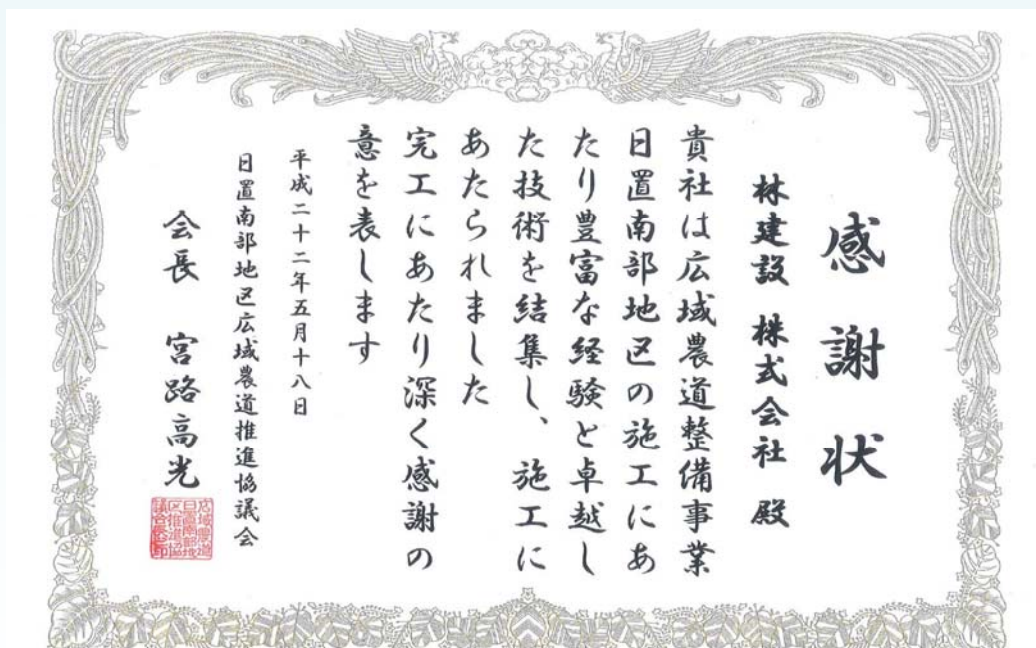 感謝状
林建設 株式会社 殿
貴社は広域農道整備事業
日置南部地区の施工にあ
たり豊富な経験と卓越し
た技術を結集し、施工に
あたられました
完工にあたり深く感謝の
意を表します
平成二十二年五月十八日
日置南部地区広域農道推進協議会
会長 宮路高光
広域農道
日置南部地
区推進協
議会長印